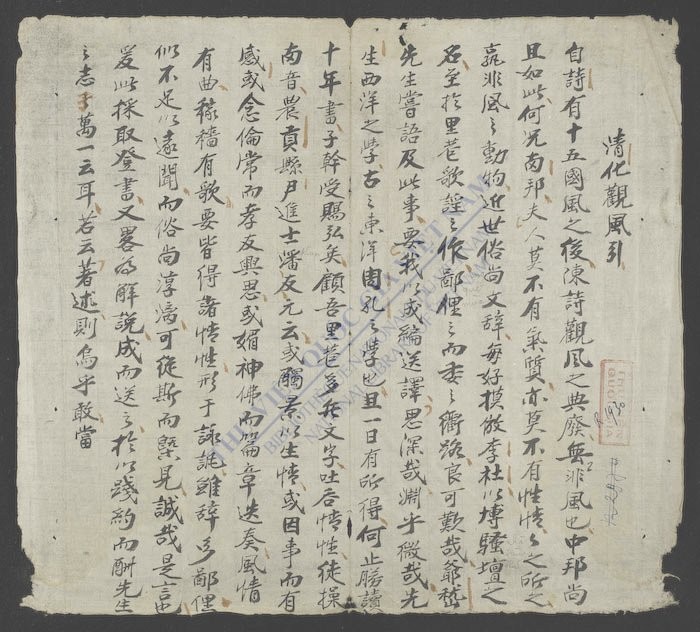 清化觀風引
自詩有十五國風之後陳詩觀風之典廢無非風也中邦尚
且如此何況南邦夫人莫不有氣質亦莫不有性情々之所之
孰非風之動物近世俗尚文辞每好摸倣李杜以塼騷壇之
名至於里巷歌謠之作鄙俚之而委之衢路良可歎哉爺嵆
先生嘗語及此事要我以或編送譯思深哉淵乎微哉先
生西洋之學古之東洋周孔之學也且一日有所得何止勝讀
十年書子幹受賜弘矣顧吾里巷多無文字吐唇情性徒操
南音農貢縣尹進士潘友元云或觸景以生情或因事而有
感或念倫常而孝友興思或媚神佛而篇章迭奏風情
有曲稼穡有歌要皆得諸情性形于詠謳雖辞多鄙俚
似不足以遠聞而俗尚淳漓可從斯而槩見誠哉是言也
爰此採取登書又畧為解說成而送之於以踐約而酬先生
之志于萬一云耳若云著述則烏乎敢當
THƯ VIỆN QUỐC GIA VIỆT NAM
NATIONAL LIBRARY OF VIETNAM